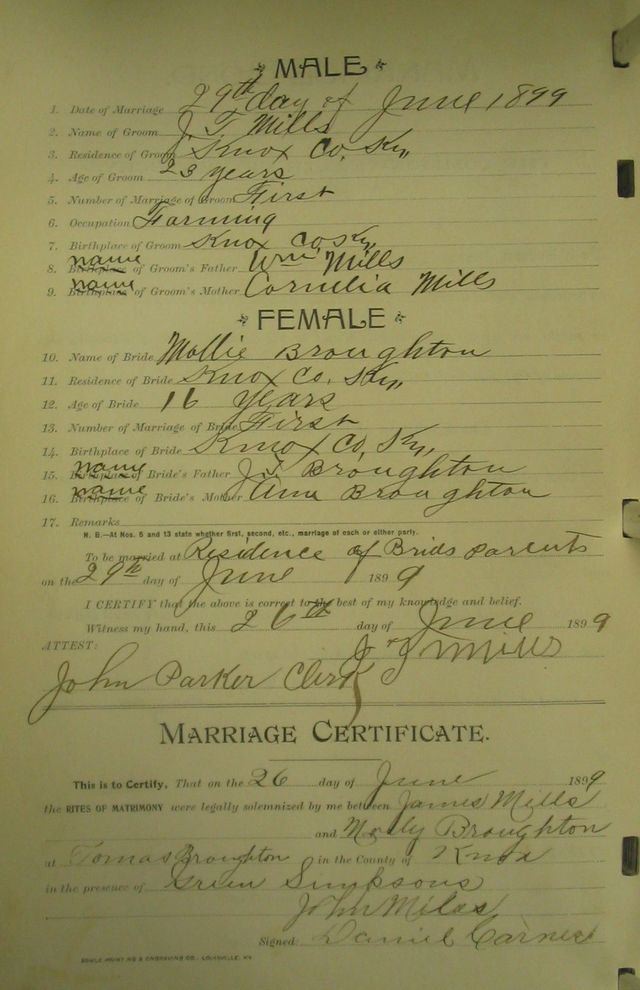 MALE
1. Date of Marriage 29th day of June 1899
2. Name of Groom J. T. Mills
3. Residence of Groom Knox Co, Ky,,
4. Age of Groom 23 years
5. Number of Marriage of Groom First
6. Occupation Farming
7. Birthplace of Groom Knox Co, Ky,
8. Birthplace name of Groom's Father Wm Mills
9. Birthplace name of Groom's Mother Cornelia Mills
FEMALE
10. Name of Bride Mollie Broughton
11. Residence of Bride Knox Co, Ky,,
12. Age of Bride 16 years
13. Number of Marriage of Bride First
14. Birthplace of Bride Knox Co, Ky,,
15. Birthplace name of Bride's Father J. T. Broughton
16. Birthplace name of Bride's Mother Ann Broughton
17. Remarks
N. B.—At Nos. 5 and 13 state whether first, second, etc., marriage of each or either party.
To be married at Residence of Brids parents
on the 29th day of June 1899
I CERTIFY that the above is correct to the best of my knowledge and belief.
Witness my hand, this 26th day of June 1899
ATTEST: J T Mills
John Parker Clerk
MARRIAGE CERTIFICATE.
This is to Certify, That on the 26 day of June 1899
the RITES OF MATRIMONY were legally solemnized by me between James Mills
and Broughton
at Tomas Broughton in the County of Knox
in the presence of Green Simpsons
John Miles
Signed: Daniel Carnes